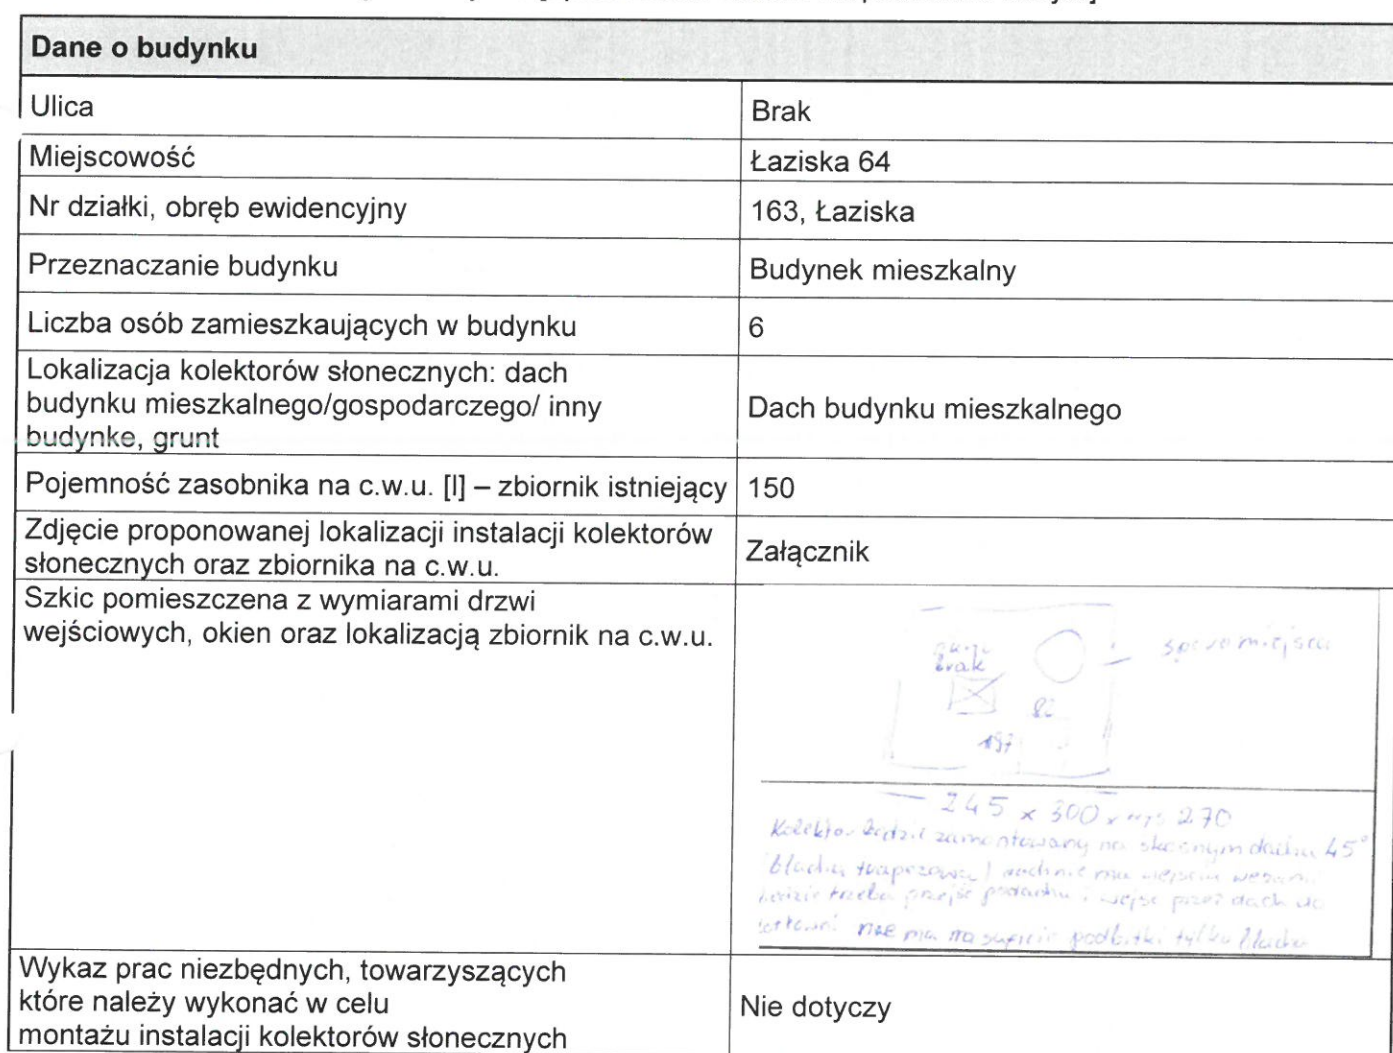 Dane o budynku
Ulica
Brak
Miejscowość
Łaziska 64
Nr działki, obręb ewidencyjny
163, Łaziska
Przeznaczanie budynku
Budynek mieszkalny
Liczba osób zamieszkaujących w budynku
6
Lokalizacja kolektorów słonecznych: dach
budynku mieszkalnego/gospodarczego/ inny
budynke, grunt
Dach budynku mieszkalnego
Pojemność zasobnika na c.w.u. [l] – zbiornik istniejący
150
Zdjęcie proponowanej lokalizacji instalacji kolektorów
słonecznych oraz zbiornika na c.w.u.
Załącznik
Szkic pomieszczena z wymiarami drzwi
wejściowych, okien oraz lokalizacją zbiornik na c.w.u.
sporo miejsca
brak
82
197
245 x 300 x wys 270
Kolektor będzie zamontowany na skośnym dachu 45°
blacha trapezowa
będzie trzeba przejść i wejść przez dach do
nie ma na suficie podbitki tylko blacha
Wykaz prac niezbędnych, towarzyszących
które należy wykonać w celu
montażu instalacji kolektorów słonecznych
Nie dotyczy